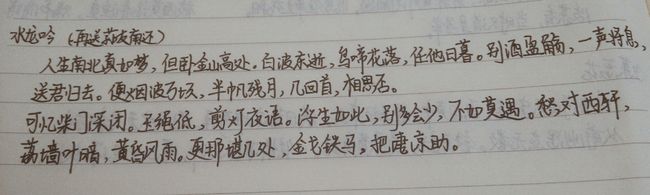 水龙吟（再送荪友南还）
人生南北真如梦，但卧金山高处。白波东逝，鸟啼花落，任他日暮。别酒盈觞，一声将息，
送君归去。便烟波万顷，半帆残月，几回首，相思否。
可忆柴门深闭。玉绳低，剪灯夜语。浮生如此，别多会少，不如莫遇。愁对西轩，
荔墙叶暗，黄昏风雨。更那堪几处，金戈铁马，把凄凉助。